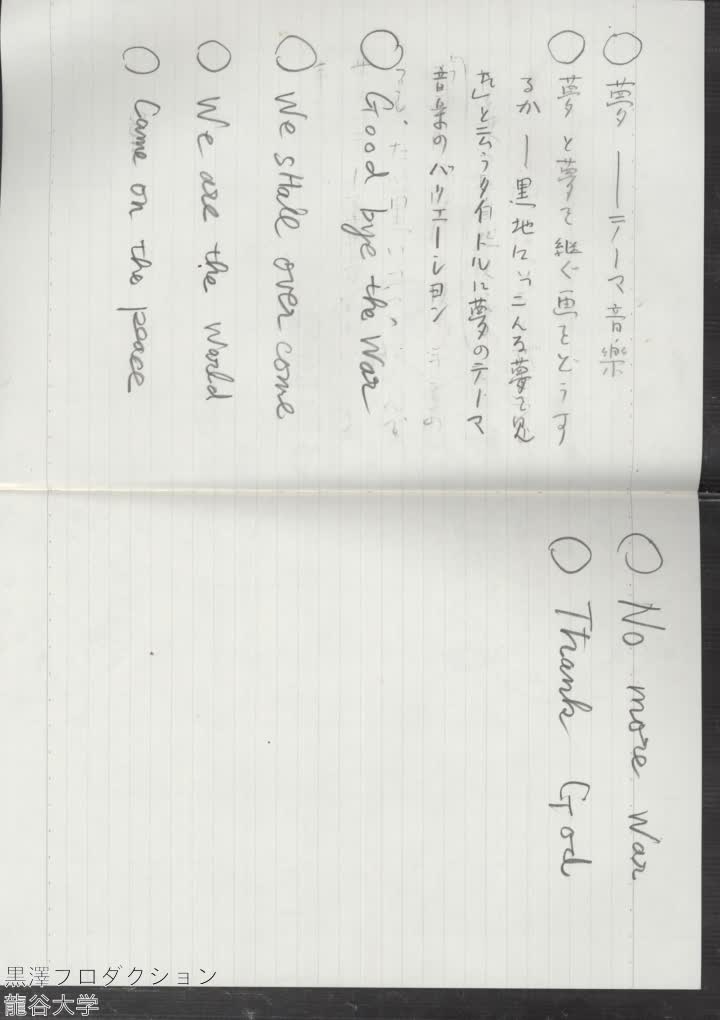 ○ 夢 ── テーマ音楽
○ 夢と夢を継ぐ画をどうす
るか ─ 黒地に「こんな夢を見
た」と云うタイトルに夢のテーマ
音楽のバリエーション
○ Good bye the War
○ We sHall over come
○ We are the World
○ Came on the peace
○ No more War
○ Thank God
黒澤プロダクション
龍谷大学